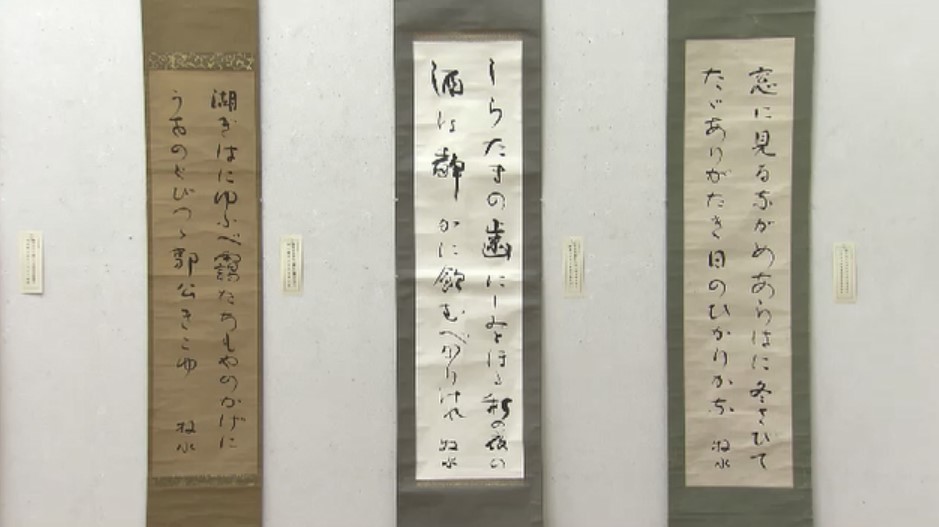 窓に見るながめあらはに冬さびて
たゞありがたき日のひかりかな 牧水
しらたまの歯にしみとほる秋の夜の
酒は静かに飲むべかりけれ 牧水
湖ぎはにゆふべ靄たちもやのかげに
うおのとびつゝ郭公きこゆ 牧水